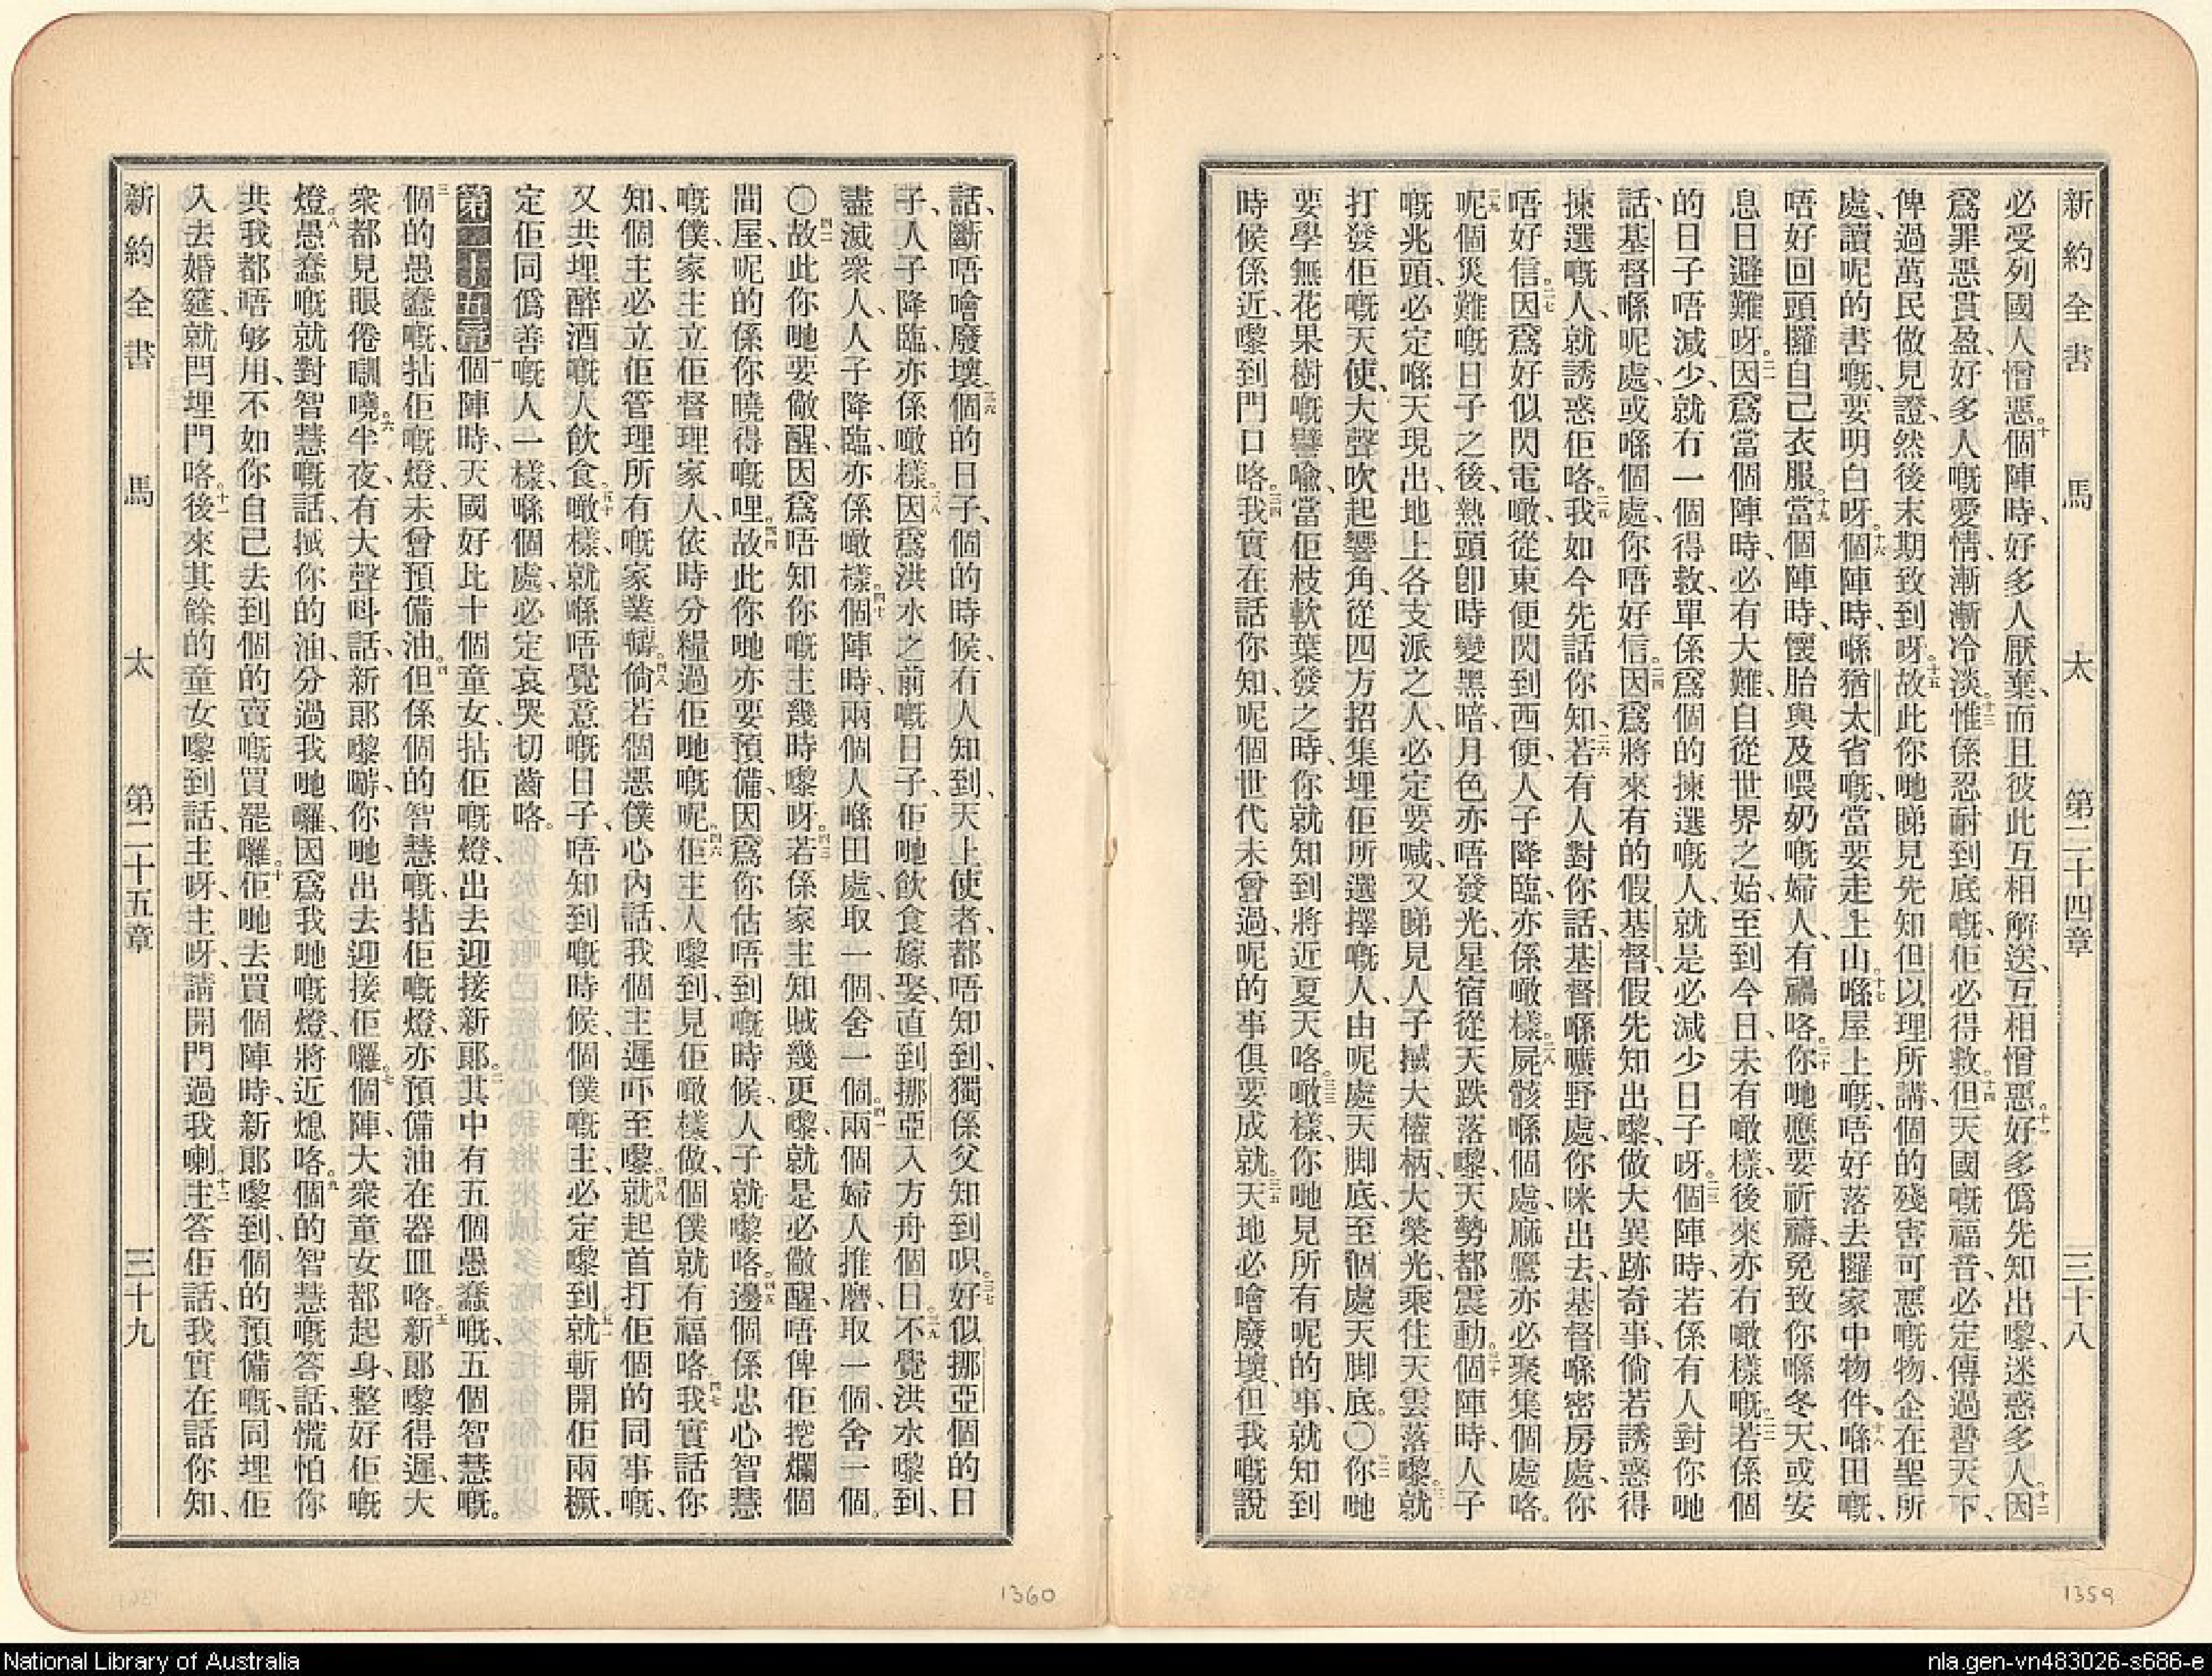 新約全書 馬太 第二十四章 三十八
必受列國人憎惡。十個陣時、好多人厭棄、而且彼此互相解送、互相憎惡。十一好多僞先知出嚟、迷惑多人。十二因
爲罪惡貫盈、好多人嘅愛情、漸漸冷淡。十三惟係忍耐到底嘅、佢必得救。十四但天國嘅福音、必定傳過普天下、
俾過萬民做見證、然後末期致到呀。十五故此你哋睇見先知但以理所講、個的殘害可惡嘅物、企在聖所
處、讀呢的書嘅、要明白呀。十六個陣時、喺猶太省嘅、當要走上山。十七喺屋上嘅、唔好落去攞家中物件、十八喺田嘅、
唔好回頭攞自己衣服。十九當個陣時、懷胎與及喂奶嘅婦人、有禍咯。二十你哋應要祈禱、免致你喺冬天、或安
息日避難呀。二一因爲當個陣時、必有大難、自從世界之始、至到今日、未有噉樣、後來亦冇噉樣嘅。二二若係個
的日子唔減少、就冇一個得救、單係爲個的揀選嘅人、就是必減少日子呀。二三個陣時、若係有人對你哋
話、基督喺呢處、或喺個處、你唔好信。二四因爲將來有的假基督、假先知出嚟、做大異跡奇事、倘若誘惑得
揀選嘅人、就誘惑佢咯。二五我如今先話你知、二六若有人對你話、基督喺曠野處、你咪出去、基督喺密房處、你
唔好信。二七因爲好似閃電噉、從東便閃到西便、人子降臨、亦係噉樣。二八屍骸喺個處、麻鷹亦必聚集個處咯。
二九呢個災難嘅日子之後、熱頭卽時變黑暗、月色亦唔發光、星宿從天跌落嚟、天勢都震動。三十個陣時、人子
嘅兆頭、必定喺天現出、地上各支派之人、必定要喊、又睇見人子搣大權柄、大榮光、乘住天雲落嚟。三一就
打發佢嘅天使、大聲吹起響角、從四方招集埋佢所選擇嘅人、由呢處天脚底、至個處天脚底。〇三二你哋
要學無花果樹嘅譬喻、當佢枝軟葉發之時、你就知到將近夏天咯。三三噉樣、你哋見所有呢的事、就知到
時候係近、嚟到門口咯。三四我實在話你知、呢個世代未曾過、呢的事俱要成就。三五天地必噲廢壞、但我嘅說
話、斷唔噲廢壞。三六個的日子、個的時候、冇人知到、天上使者、都唔知到、獨係父知到呮。三七好似挪亞個的日
子、人子降臨、亦係噉樣。三八因爲洪水之前嘅日子、佢哋飲食嫁娶、直到挪亞入方舟個日。三九不覺洪水嚟到、
盡滅衆人、人子降臨、亦係噉樣。四十個陣時、兩個人喺田處、取一個、舍一個。四一兩個婦人推磨、取一個、舍一個。
〇四二故此你哋要儆醒、因爲唔知你嘅主幾時嚟呀。四三若係家主知賊幾更嚟、就是必儆醒、唔俾佢挖爛個
間屋、呢的係你曉得嘅哩。四四故此你哋亦要預備、因爲你估唔到嘅時候、人子就嚟咯。四五邊個係忠心智慧
嘅僕、家主立佢督理家人、依時分糧過佢哋嘅呢。四六佢主人嚟到、見佢噉樣做、個僕就有福咯。四七我實話你
知、個主必立佢管理所有嘅家業嚹。四八倘若個惡僕心內話、我個主遲吓至嚟。四九就起首打佢個的同事嘅、
又共埋醉酒嘅人飲食。五十噉樣、就喺唔覺意嘅日子、唔知到嘅時候、個僕嘅主、必定嚟到、五一就斬開佢兩橛、
定佢同僞善嘅人一樣、喺個處、必定哀哭切齒咯。
第二十五章 一個陣時、天國好比十個童女、拈佢嘅燈、出去迎接新郎。二其中有五個愚蠢嘅、五個智慧嘅。
三個的愚蠢嘅、拈佢嘅燈、未曾預備油。四但係個的智慧嘅、拈佢嘅燈、亦預備油在器皿咯。五新郎嚟得遲、大
衆都見眼倦瞓曉。六半夜、有大聲呌話、新郎嚟嚹、你哋出去迎接佢囉。七個陣、大衆童女都起身、整好佢嘅
燈。八愚蠢嘅就對智慧嘅話、搣你的油、分過我哋囉、因爲我哋嘅燈、將近熄咯。九個的智慧嘅答話、慌怕你
共我都唔够用、不如你自己去到個的賣嘅買罷囉。十佢哋去買個陣時、新郎嚟到、個的預備嘅、同埋佢
入去婚筵、就閂埋門咯。十一後來其餘的童女嚟到話、主呀、主呀、請開門過我喇。十二主答佢話、我實在話你知、
新約全書 馬太 第二十五章 三十九
1360
1359
National Library of Australia
nla.gen-vn483026-s686-e